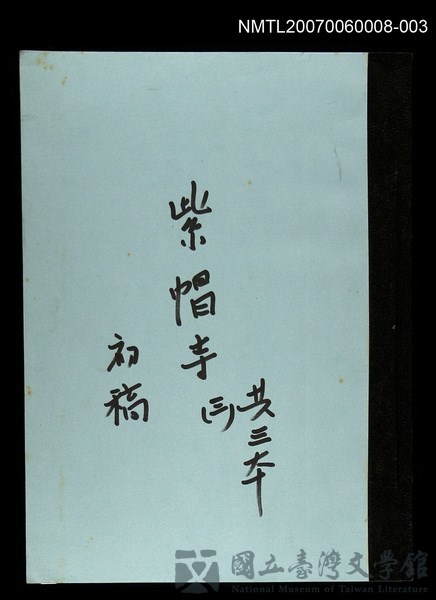 NMTL20070060008-003
共三本
紫帽寺
(三)
初稿
國立臺灣文學館
National Museum of Taiwan Literature